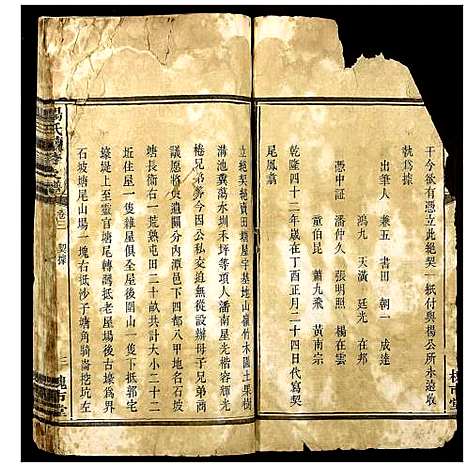 干今欲有憑立此絕契一紙付與楊公所永遠收
執爲據
出筆人 兼五 書田 朝一 成達
鴻九 天廣 廷光 在邦
憑中証 潘仲久 張明照 楊在雲
童伯昆 蕭九飛 黃南宗
乾隆四十二年歲在丁酉正月二十四日代寫契
尾鳳翥
立絕契絕賣田塘屋宇基地山嶺竹木園土果樹
溝池糞蕩水圳禾坪等項人潘南星光楷容輝光
楼兄弟等今因公私交迫無從設辦母子兄弟商
議愿將央遺關分内潭邑下四都八甲地名石坡
塘長衞石一荒熟屯田二十畝共計大小二十二
坵住屋一隻雜屋俱全屋後圍山一隻下抵郭宅
壕堤上至靈官塘尾轉灣抵老屋場後古壕爲界
石坡塘尾山塲一塊右抵沙子塘角騎崙挖坑左
卷二 契據
二
槐市堂